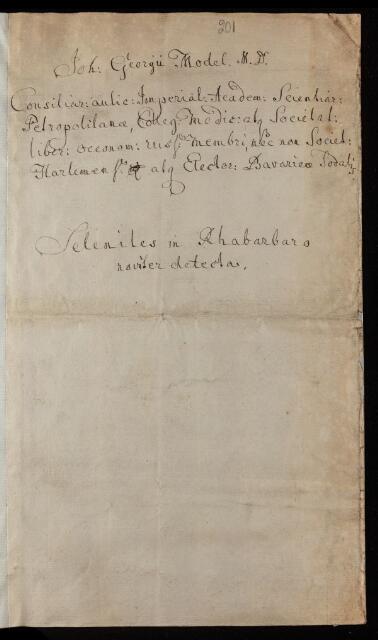 201
Joh: Georgii Model. M. D.
Consiliar: aulic: Imperial: Academ: Scientiar:
Petropolitanæ, Colleg: Medic: atq Societat:
liber: œconom: russ: membri, nec non Societ:
Harlemens: atq Elector: Bavaricæ Sodalis
Selenites in Rhabarbaro
noviter detecta.